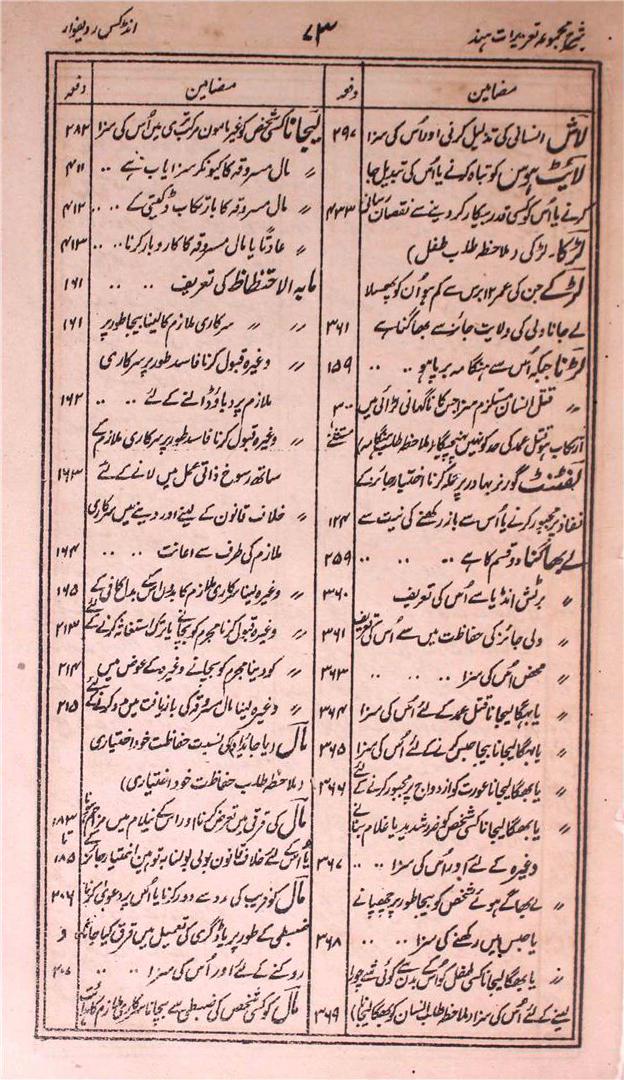 شرح مجموعہ تعزیرات ہند
۷۳
انڈکس ردیفوار
مضامین
دفعہ
لاش انسانی کی تذلیل کرنی اور اُس کی سزا ۲۹۷
لائیٹ ہوس کو تباہ کرنے یا اُس کی تبدیل جا
کرنے یا اُس کو کسی قدر بیکار کر دینے سے نقصان رسانی ۴۳۳
لڑکا۔ لڑکی (ملاحظہ طلب طفل)
لڑکے جن کی عمر ۱۲ برس سے کم ہو اُن کو پھسلا
لے جانا ولی کی ولایت جائز سے بھاگنا ہے ۳۶۱
لڑنا جبکہ اُس سے ہنگامہ برپا ہو ۱۵۹
〃 قتل انسان مستلزم سزا جس کا ناگہانی لڑائی میں ۳۰۰
ارتکاب ہو قتل عمد کی حد کو نہیں پہنچیگا (ملاحظہ طلب ہنگامہ)
لفٹنٹ گورنر بہادر پر حملہ کرنا اختیار جائز کے
نفاذ پر مجبور کرنے یا اُس سے باز رکھنے کی نیت سے ۱۲۴
لے بھاگنا دو قسم کا ہے ۳۵۹
〃 برٹش انڈیا سے اُس کی تعریف ۳۶۰
〃 ولی جائز کی حفاظت میں سے اُس کی تعریف ۳۶۱
〃 محض اُس کی سزا ۳۶۳
〃 یا بھگا لیجانا قتل عمد کے لئے اُس کی سزا ۳۶۴
〃 یا بھگا لیجانا بیجا حبس کرنے کے لئے اُس کی سزا ۳۶۵
〃 یا بھگا لیجانا عورت کو ازدواج پر مجبور کرنے کے لئے ۳۶۶
〃 یا بھگا لیجانا کسی شخص کو ضرر شدید یا غلام بنانے
وغیرہ کے لئے اور اُس کی سزا ۳۶۷
〃 لے بھاگے ہوئے شخص کو بیجا طور پر چھپانے
یا حبس میں رکھنے کی سزا ۳۶۸
〃 یا بھگا لیجانا کسی طفل کو اُس کے بدن سے کوئی شے چورا
لینے کے لئے اُس کی سزا (ملاحظہ طلب انسان کو بھگا لیجانا) ۳۶۹
مضامین
دفعہ
لیجانا کسی شخص کو غیر مامون مرکب تری میں اُس کی سزا ۲۸۲
〃 مال مسروقہ کا کیونکر سزا یاب ہے ۴۱۱
〃 مال مسروقہ کا بارتکاب ڈکیتی کے ۴۱۲
〃 عادتًا یا مال مسروقہ کا کاروبار کرنا ۴۱۳
مابہ الاحتظاظ کی تعریف ۱۶۱
〃 〃 〃 سرکاری ملازم کا لینا بیجا طور پر ۱۶۱
〃 وغیرہ قبول کرنا فاسد طور پر سرکاری
ملازم پر دباؤ ڈالنے کے لئے ۱۶۲
〃 وغیرہ قبول کرنا فاسد طور پر سرکاری ملازم کے
ساتھ رسوخ ذاتی عمل میں لانے کے لئے ۱۶۳
〃 خلاف قانون کے لینے اور دینے میں سرکاری
ملازم کی طرف سے اعانت ۱۶۴
〃 وغیرہ لینا سرکاری ملازم کا بدون اس کے بدل کافی کے ۱۶۵
〃 وغیرہ قبول کرنا مجرم کو بچانے یا ترک استغاثہ کرنے کے لئے ۲۱۳
〃 کو دینا مجرم کو بچانے وغیرہ کے عوض میں ۲۱۴
〃 وغیرہ لینا مال مسروقہ کی بازیافت میں مدد کرنے کے لئے ۲۱۵
مال (یا جائداد) کی نسبت حفاظت خود اختیاری
(ملاحظہ طلب حفاظت خود اختیاری)
مال کی قرقی میں تعرض کرنا اور اس کے نیلام میں مزاحم ہونا ۱۸۳ تا
یا اُس کے لئے خلاف قانون بولی بولنا بہ توہین اختیار جائز کے ۱۸۵
مال کو فریب کی رو سے دور کرنا یا اُس پر دعویٰ کرنا ۲۰۶
ضبطی کے طور پر یا ڈگری کی تعمیل میں قرق کیا جانے و
روکنے کے لئے اور اُس کی سزا ۲۰۷
مال کو کسی شخص کی ضبطی سے بچانا سرکاری ملازم کا